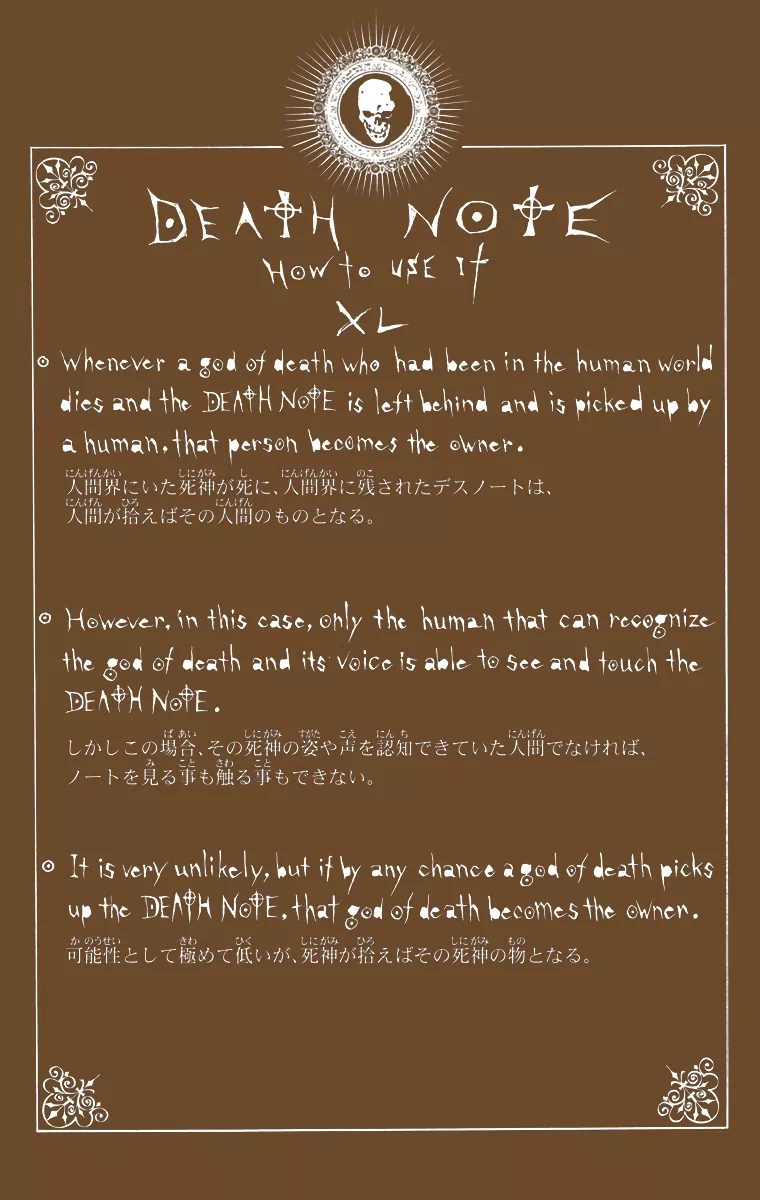 DEATH NOTE
HOW to USE It
XL
Whenever a god of death who had been in the human world
dies and the DEATH NOTE is left behind and is picked up by
a human, that person becomes the owner.
人間界にいた死神が死に、人間界に残されたデスノートは、
人間が拾えばその人間のものとなる。
However, in this case, only the human that can recognize
the god of death and its voice is able to see and touch the
DEATH NOTE.
しかしこの場合、その死神の姿や声を認知できていた人間でなければ、
ノートを見る事も触る事もできない。
It is very unlikely, but if by any chance a god of death picks
up the DEATH NOTE, that god of death becomes the owner.
可能性として極めて低いが、死神が拾えばその死神の物となる。